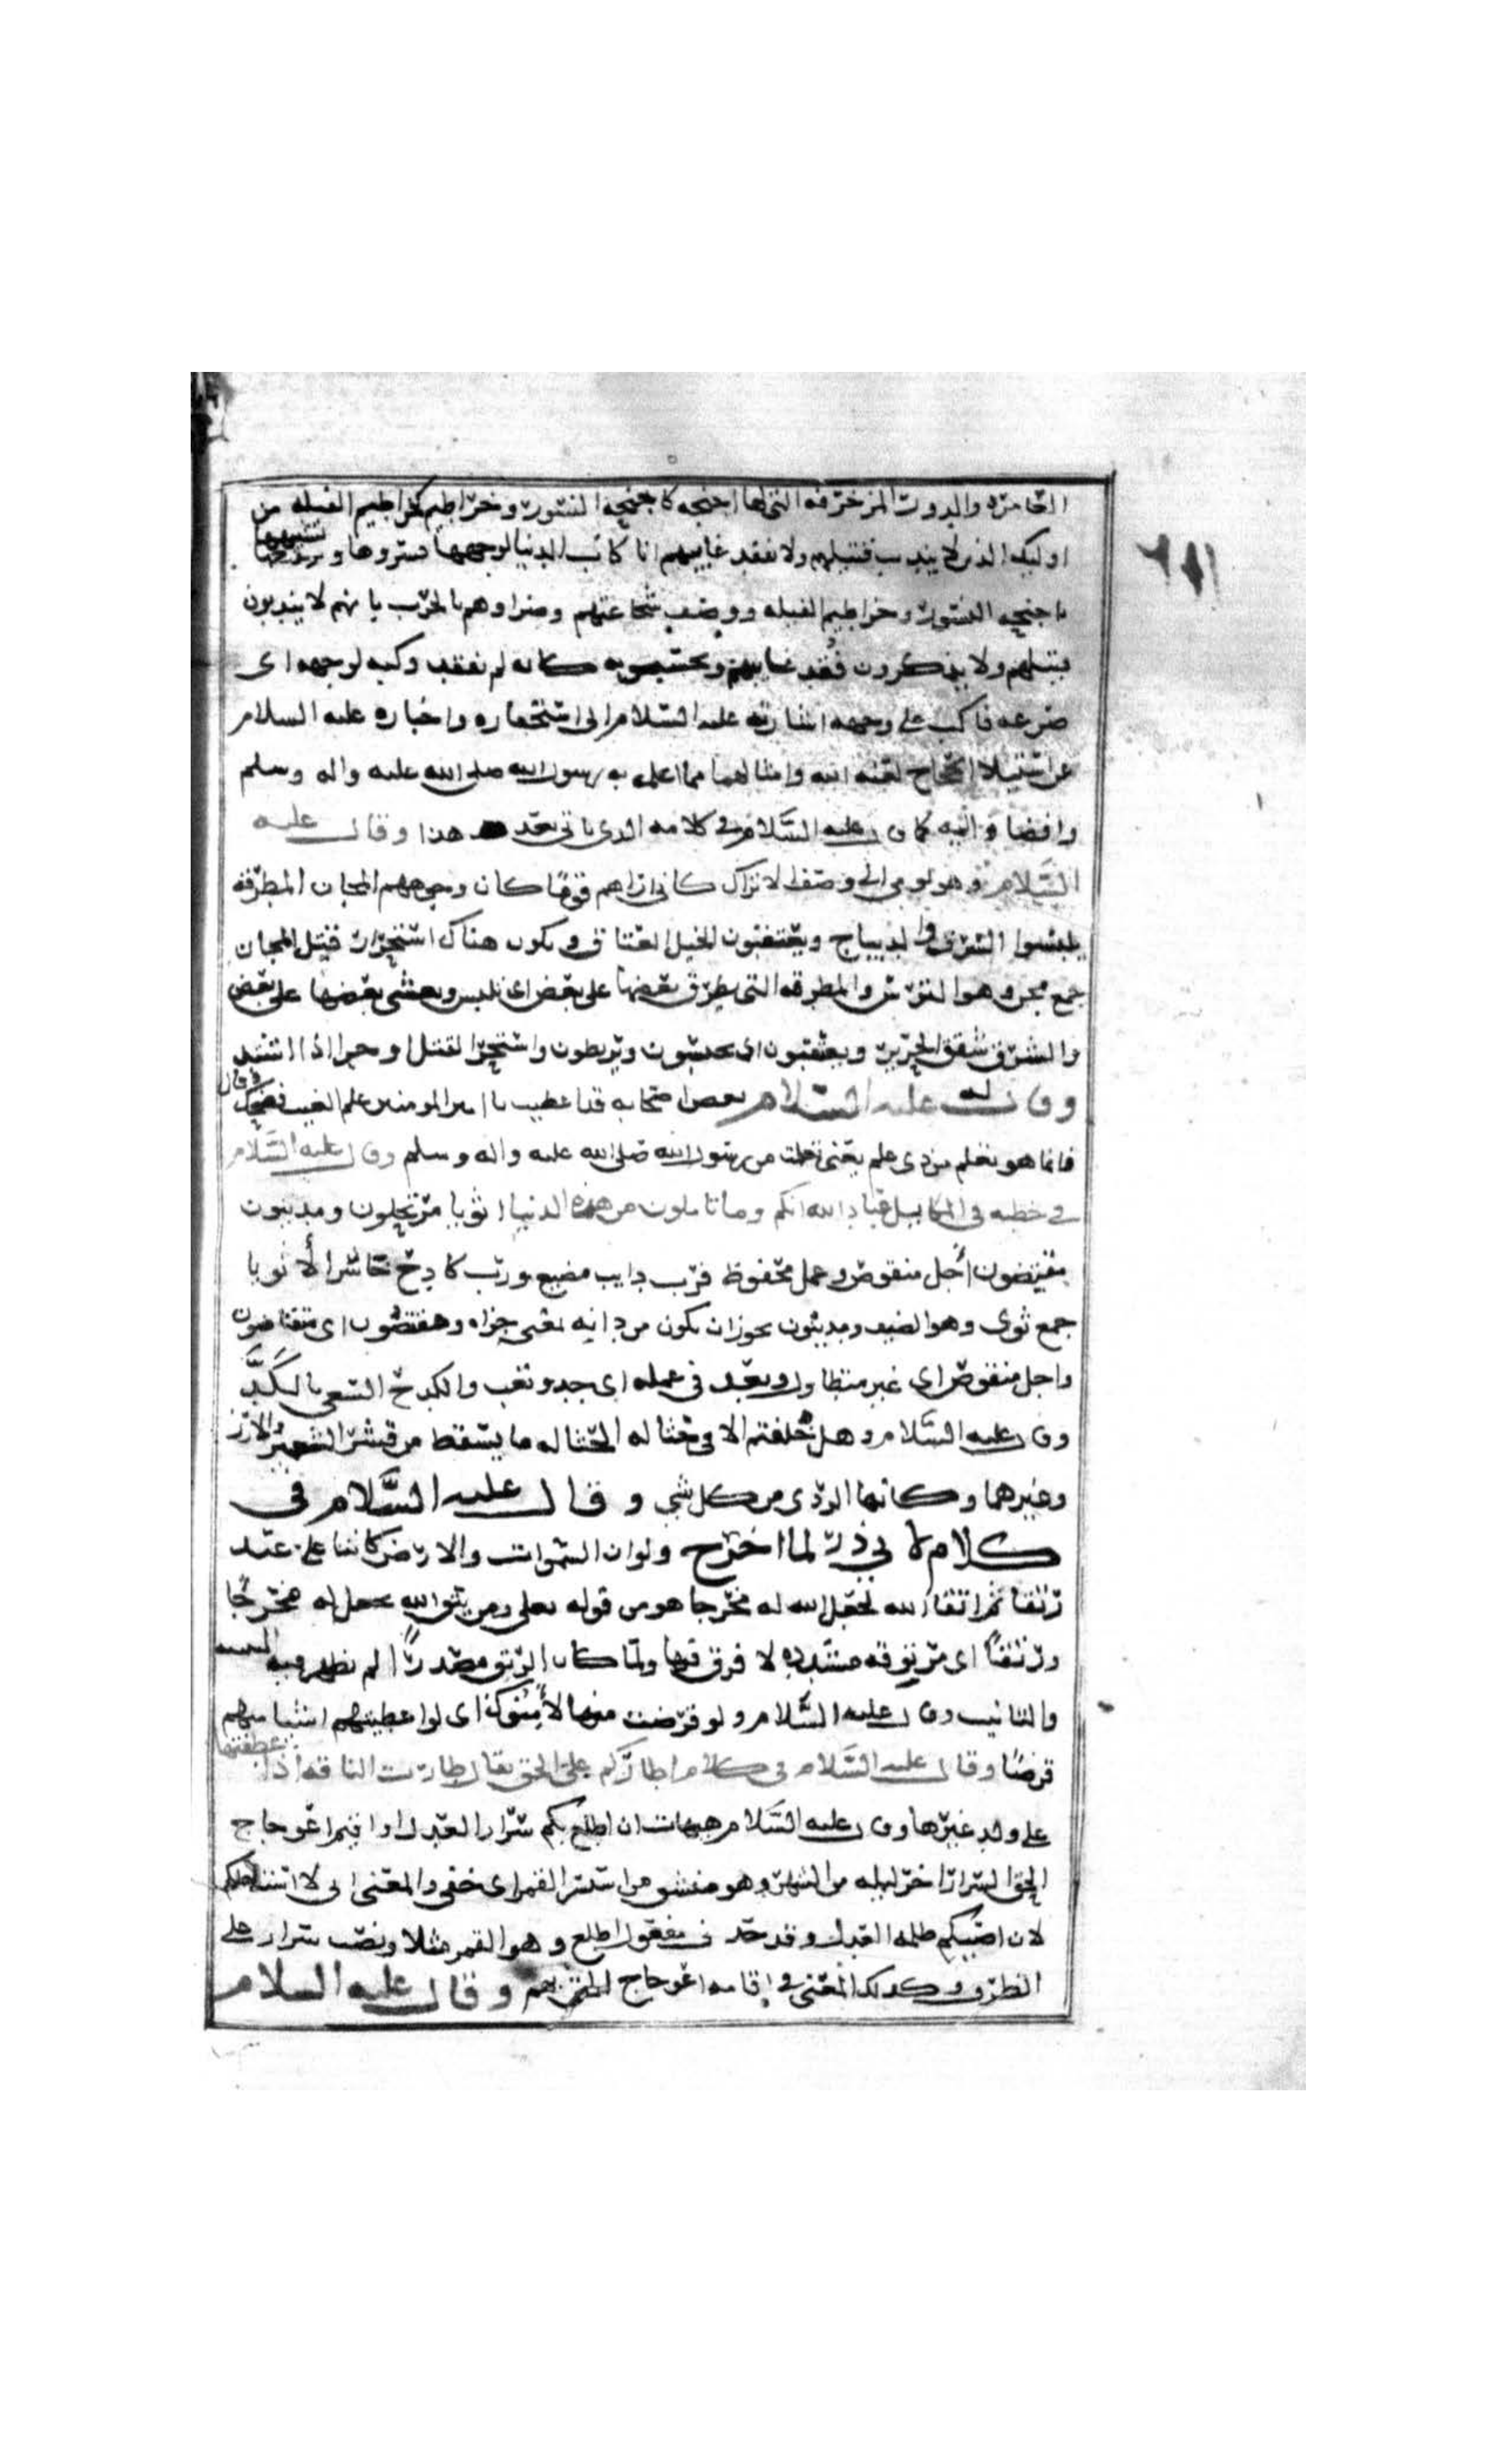 العامره والدور المزخرفه التي لها اجنحه كاجنحه النسور وخراطيم كخراطيم الفيله من
اوليك الذين لا يندب قتيلهم ولا يفقد غايبهم انا كاب الدنيا لوجهها ستروها و تشبيهها
باجنحه النسور وخراطيم الفيله ووصف شجاعتهم وضراوهم بالحرب بانهم لا يندبون
قتيلهم ولا يذكرون فقد غايبهم ويحتسبونه كانه لم يفقد وكبه لوجهه اى
صرعه فاكب على وجهه اشارته عليه السلام الى استحقاره واخباره عليه السلام
عن استيلا الحجاج لعنه الله وامثالهما مما اعلمه به رسول الله صلى الله عليه واله وسلم
وافضا واليه كما قال عليه السلام في كلامه الذي ياتي بعد هذا وقال عليه
السلام وهو يومي الى وصف الاتراك كاني اراهم قوما كان وجوههم المجان المطرقه
يلبسوا السرق والديباج ويعتقبون الخيل العتاق ويكون هناك استحرار قتيل المجان
جمع مجن وهو الترس والمطرقه التي يطرق بعضها على بعض اى يلبس ويعشى بعضها على بعض
والسرق شقق الحرير ويعتقبون اى يحبسون ويربطون واستحر القتل وحر اذا اشتد
وقال له عليه السلام بعض اصحابه قد اعطيت يا امير المومنين علم الغيب فضحك وقال
فانما هو تعلم من ذي علم يعنى تعلمت من رسول الله صلى الله عليه واله وسلم وقال عليه السلام
في خطبه في المكاييل عباد الله انكم وما تاملون من هذه الدنيا اثويا مرتحلون ومدينون
مقتضون اجل منقوص وعمل محفوظ فرب دايب مضيع ورب كادح خاسر الاثويا
جمع ثوي وهو الضيف ومدينون يجوز ان يكون من دانيه بمعنى جزاه ومقتضون اى متقاضون
واجل منقوص اى غير متطاول ويعبد في عمله اى يجد وتعب والكدح السعي بالكد
وقال عليه السلام وهل خلقتم الا في حثاله الحثاله ما يسقط من قشر الشعير والارز
وغيرهما وكانها الردي من كل شي وقال عليه السلام في
كلام لابي ذر لما اخرج ولو ان السموات والارض كانتا على عبد
رتقا ثم اتقا الله لجعل الله له مخرجا هو من قوله تعلى ومن يتق الله يجعل له مخرجا
ورتقا اى مرتوقه منسده لا فرق فيها ولما كان الرتق مصدرا لم يظهر فيه التثنيه
والتانيث وقال عليه السلام ولو قرضت منها لامنوك اى لو اعطيتهم اشيا منهم
قرضا وقال عليه السلام في كلام اظاركم على الحق يقال ظارت الناقه اذا عطفتها
على ولد غيرها وقال عليه السلام هيهات ان اطلع بكم سرار العدل او اقيم اعوجاج
الحق السرار اخر ليله من الشهر وهو مشتق من استسر القمر اى خفي والمعنى اني لا
لان بكم ظلمه العدل وقد حذف مفعول اطلع وهو القمر مثلا ونصب سرار على
الظرف وكذلك المعنى في اقامه اعوجاج الحق بهم وقال عليه السلام